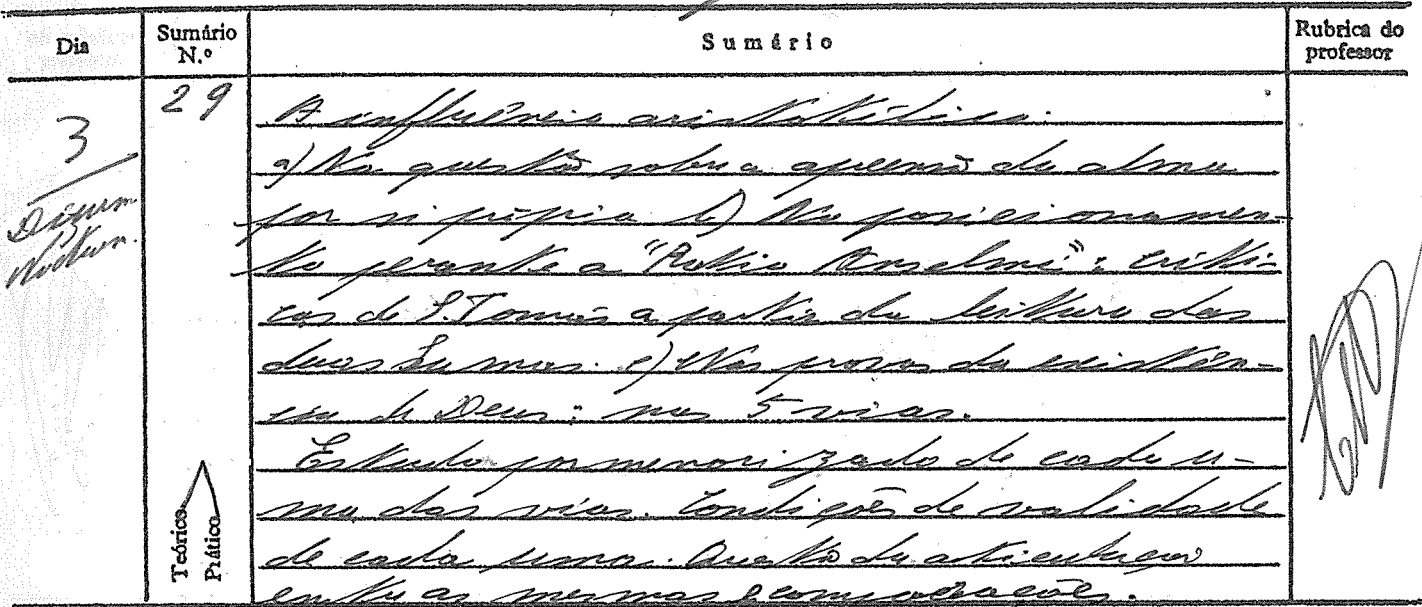 Dia
Sumário N.º
Sumário
Rubrica do professor
3
Diurn.
Nocturn.
29
Teórico
Prático
A influência aristotélica.
a) Na questão sobre a apreensão da alma
por si própria b) No posicionamen-
to perante a "Ratio Anselmi": críti-
cas de S. Tomás a partir da leitura das
duas Sumas. c) Nas provas da existên-
cia de Deus: nas 5 vias.
Estudo pormenorizado de cada u-
ma das vias. Condições de validade
de cada uma. Questão da articulação
entre as mesmas e